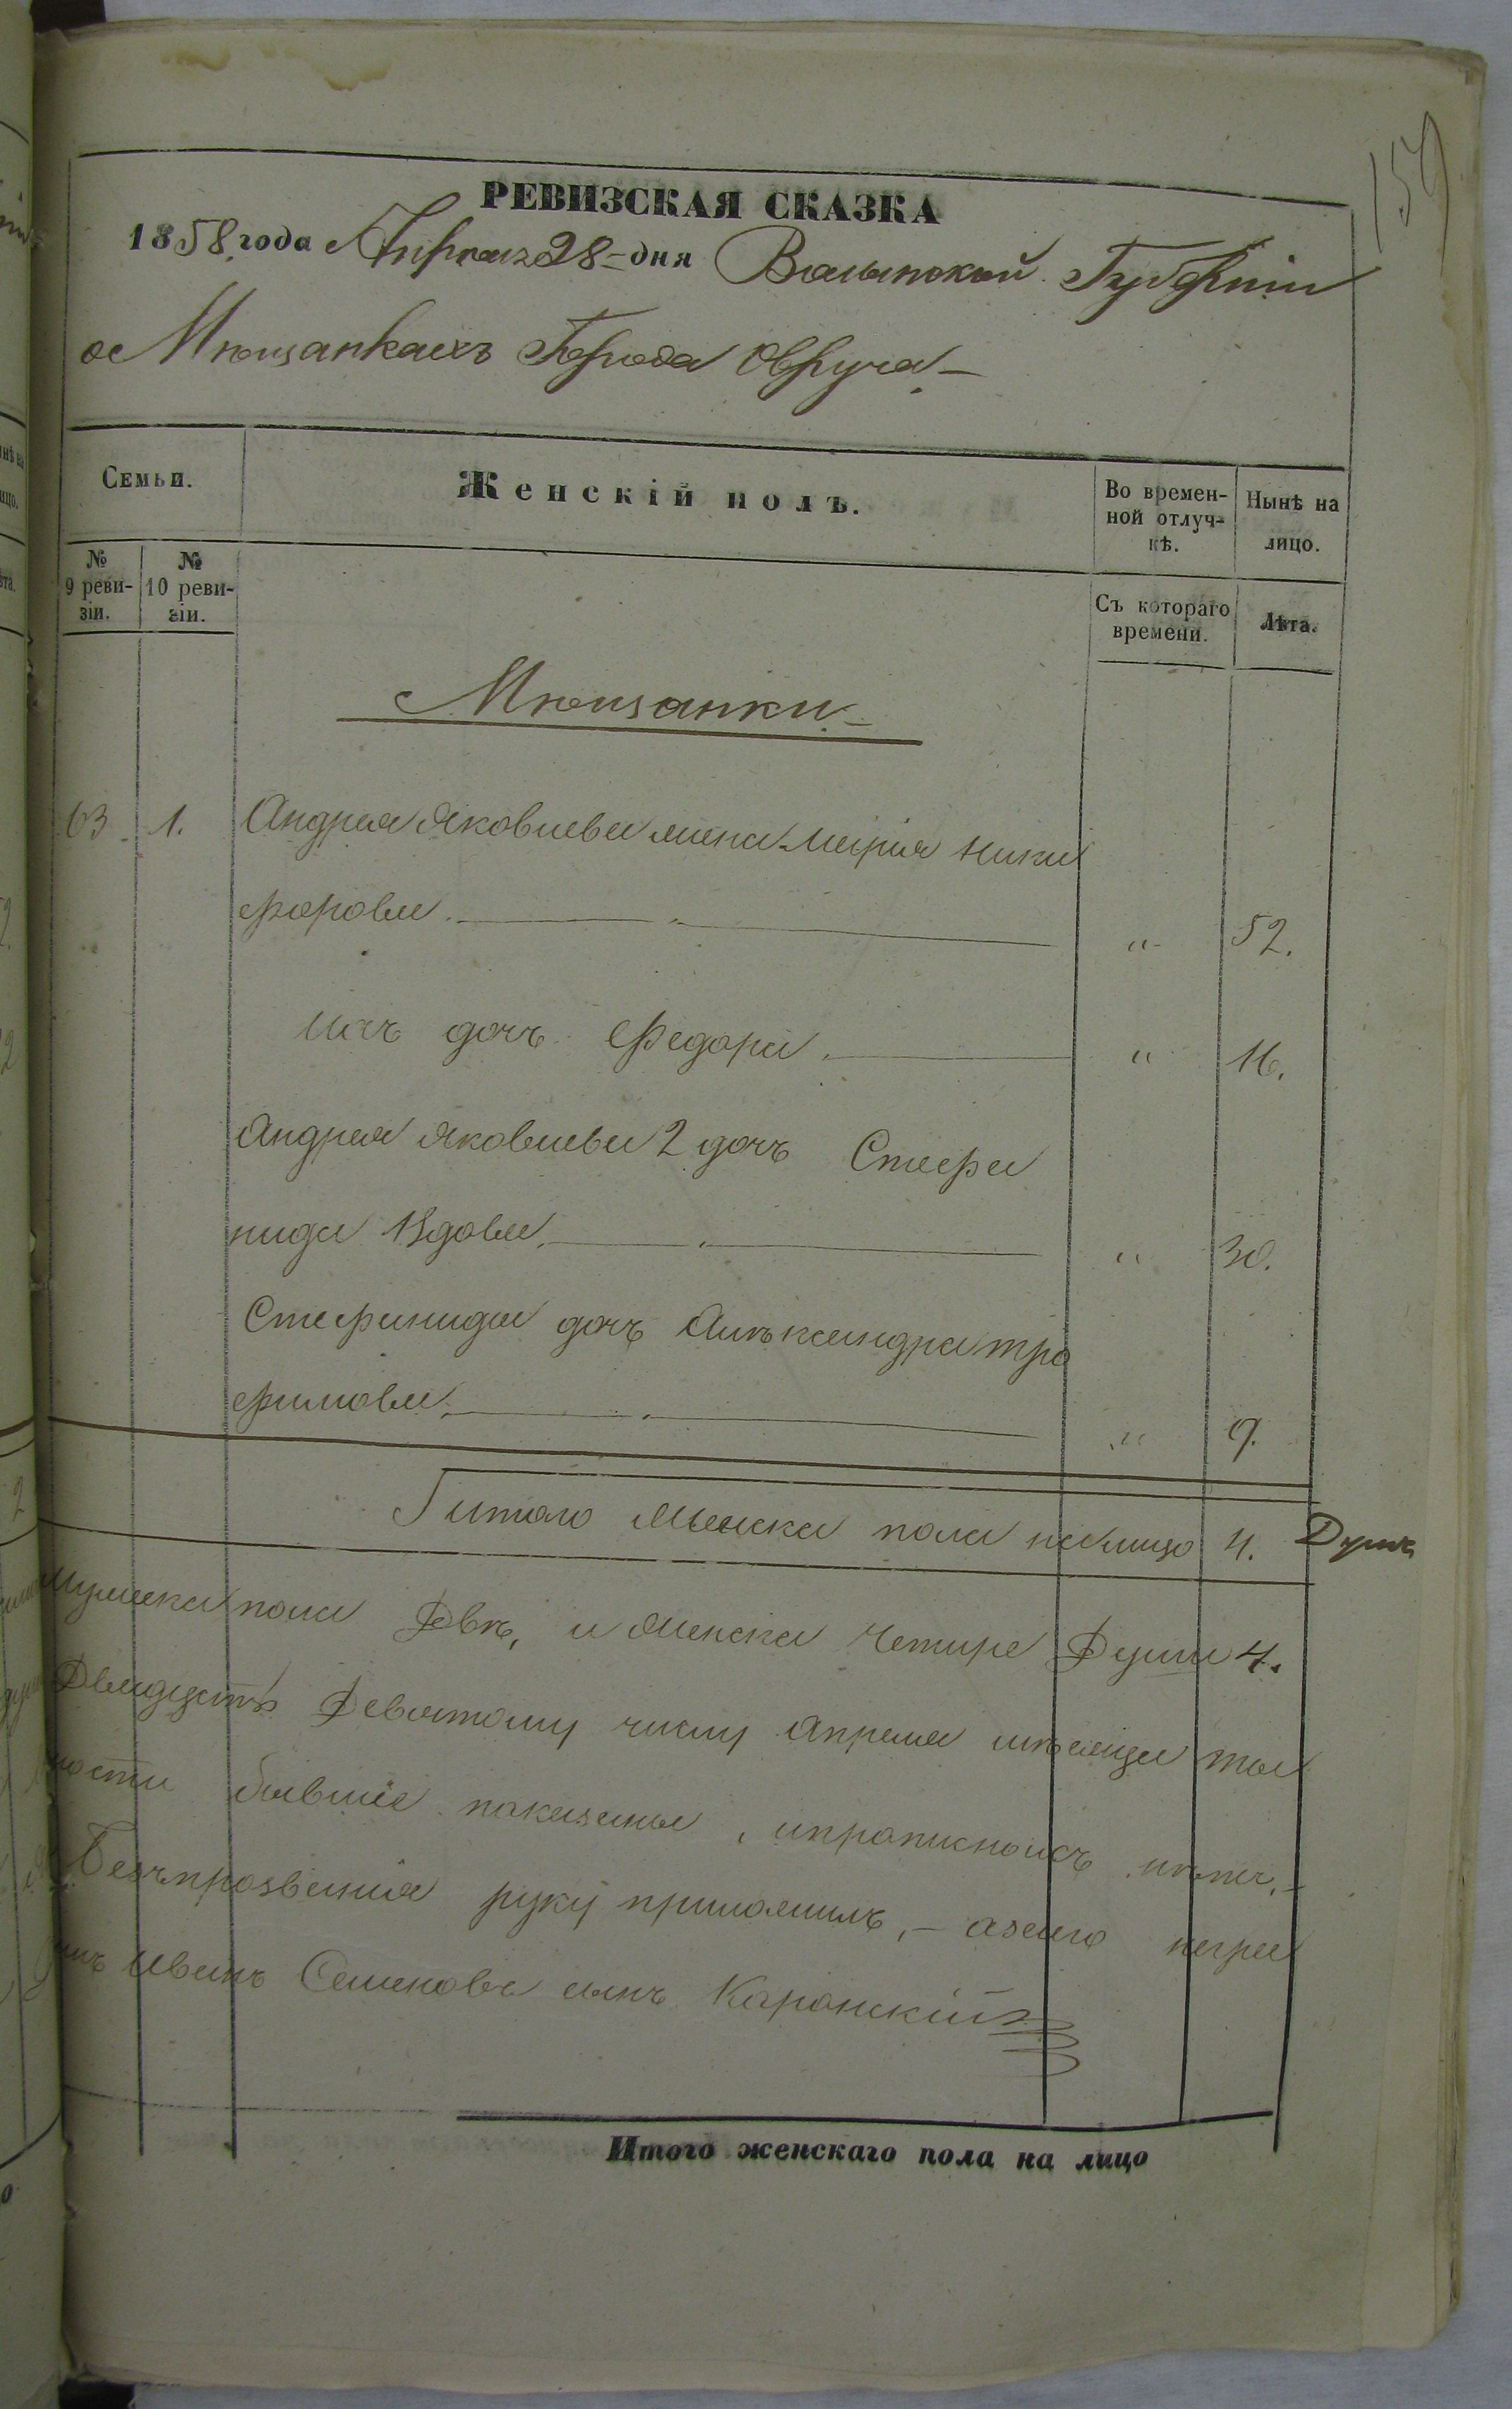 159
РЕВИЗСКАЯ СКАЗКА
1858 года Апреля 28 дня Волынской Губерніи
о Мѣщанкахъ Города Овруча
Семьи.
Женскій полъ.
Во времен-
ной отлуч-
кѣ.
Нынѣ на
лицо.
№
9 реви-
зіи.
№
10 реви-
зіи.
Съ котораго
времени.
Лѣта.
Мѣщанки
63 1. Андрея Яковлева жена Марія Ники
форова „ 52.
Ихъ дочъ Федора „ 16.
Андрея Яковлева 2 дочъ Стефа
нида Вдова „ 30.
Стефаниды дочъ Алѣксандра тро
фимова „ 9.
Итого Женска пола налицо 4. Душъ
Мужска пола Двѣ, и Женска Четире Души 4.
Двадцатъ Девятому числу Апреля мѣсяца
ности бывшіе показаны, ипрописныхъ нѣтъ,
Безъпрозванія руку приложилъ, – азаего негра
Иванъ Семеновъ сынъ Каранскій
Итого женскаго пола на лицо